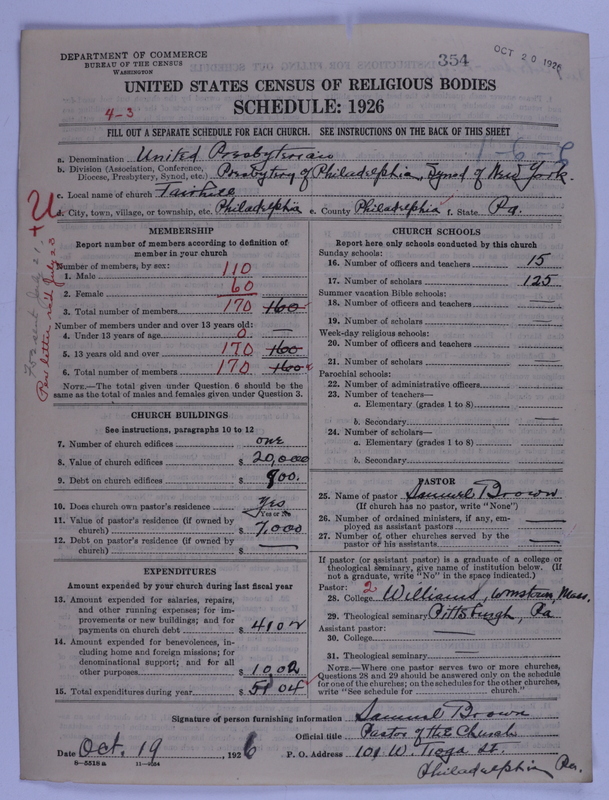 DEPARTMENT OF COMMERCE
BUREAU OF THE CENSUS
WASHINGTON
354
OCT 20 1926
UNITED STATES CENSUS OF RELIGIOUS BODIES
SCHEDULE: 1926
4-3
FILL OUT A SEPARATE SCHEDULE FOR EACH CHURCH. SEE INSTRUCTIONS ON THE BACK OF THIS SHEET
1-6-8
a. Denomination United Presbyterian
b. Division (Association, Conference, Diocese, Presbytery, Synod, etc.) Presbytery of Philadelphia, Synod of New York.
c. Local name of church Fairhill
d. City, town, village, or township, etc. Philadelphia e. County Philadelphia f. State Pa.
MEMBERSHIP
Report number of members according to definition of member in your church
Number of members, by sex:
1. Male 110
2. Female 60
3. Total number of members 170 160
Number of members under and over 13 years old:
4. Under 13 years of age 0 —
5. 13 years old and over 170 160
6. Total number of members 170 160
NOTE.—The total given under Question 6 should be the same as the total of males and females given under Question 3.
CHURCH BUILDINGS
See instructions, paragraphs 10 to 12
7. Number of church edifices one
8. Value of church edifices $ 20,000
9. Debt on church edifices $ 900.
10. Does church own pastor's residence Yes
(Yes or No)
11. Value of pastor's residence (if owned by church) $ 7,000
12. Debt on pastor's residence (if owned by church) $ —
EXPENDITURES
Amount expended by your church during last fiscal year
13. Amount expended for salaries, repairs, and other running expenses; for improvements or new buildings; and for payments on church debt $ 4102
14. Amount expended for benevolences, including home and foreign missions; for denominational support; and for all other purposes $ 1002
15. Total expenditures during year $ 5104
CHURCH SCHOOLS
Report here only schools conducted by this church
Sunday schools:
16. Number of officers and teachers 15
17. Number of scholars 125
Summer vacation Bible schools:
18. Number of officers and teachers —
19. Number of scholars —
Week-day religious schools:
20. Number of officers and teachers —
21. Number of scholars —
Parochial schools:
22. Number of administrative officers
23. Number of teachers—
a. Elementary (grades 1 to 8)
b. Secondary —
24. Number of scholars—
a. Elementary (grades 1 to 8)
b. Secondary
PASTOR
25. Name of pastor Samuel Brown
(If church has no pastor, write "None")
26. Number of ordained ministers, if any, employed as assistant pastors —
27. Number of other churches served by the pastor or his assistants —
If pastor (or assistant pastor) is a graduate of a college or theological seminary, give name of institution below. (If not a graduate, write "No" in the space indicated.)
Pastor: 2
28. College Williams, Wmstown, Mass.
29. Theological seminary Pittsburgh, Pa
Assistant pastor:
30. College —
31. Theological seminary —
NOTE.—Where one pastor serves two or more churches, Questions 28 and 29 should be answered only on the schedule for one of the churches; on the schedules for the other churches, write "See schedule for church."
Signature of person furnishing information Samuel Brown
Official title Pastor of the Church
Date Oct. 19, 1926 P. O. Address 109 W. Tioga St.
Philadelphia Pa.
8-5518a 11-9554